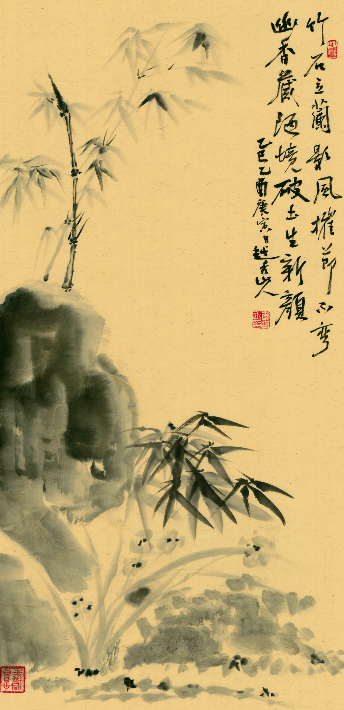 竹石立蘭影風摧節不彎
幽香藏陋境破土生新顏
乙巳乙酉庚寅日越古山人